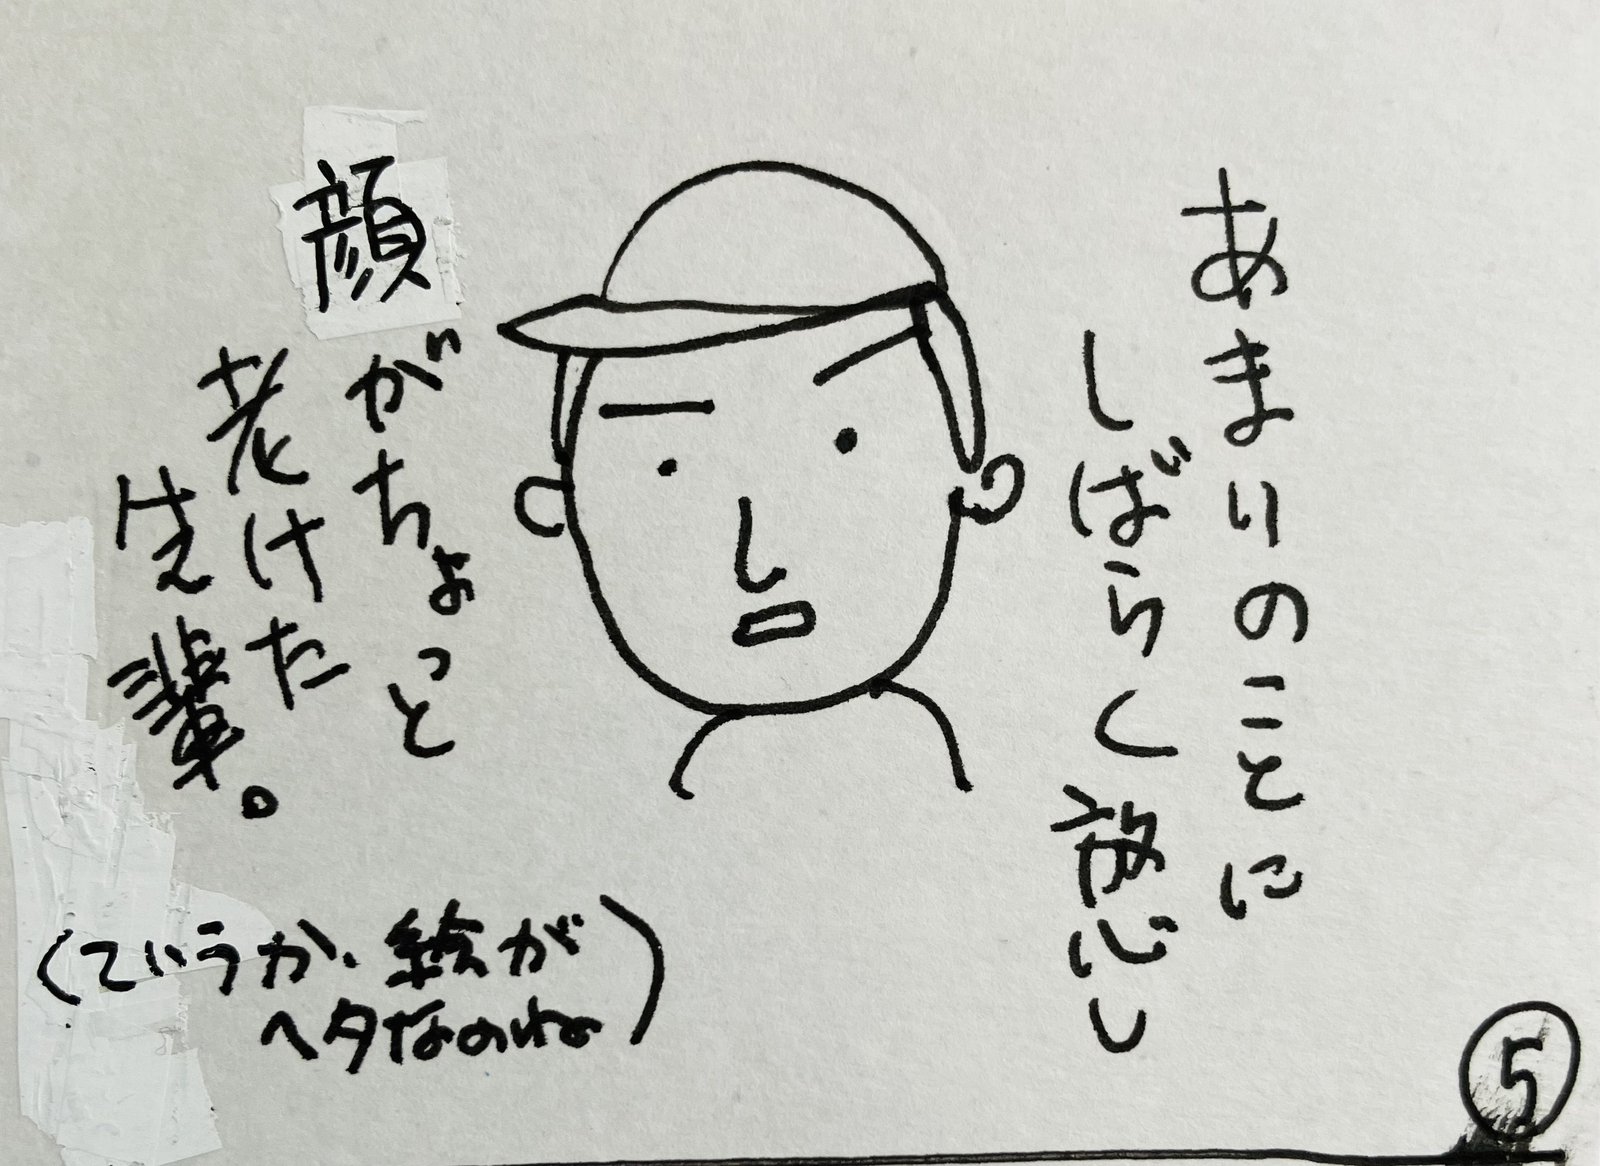 あまりのことに
しばらく放心し
顔がちょっと
老けた
先輩。
(ていうか、絵が
ヘタなのね)
⑤